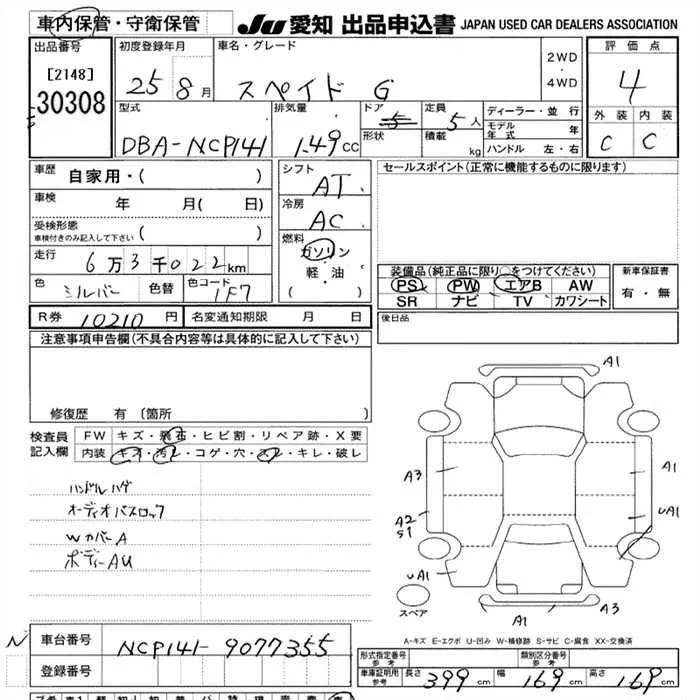 車内保管・守衛保管 JU 愛知 出品申込書 JAPAN USED CAR DEALERS ASSOCIATION
出品番号 [2148] 30308
初度登録年月 25 8月
車名・グレード スペイド G
2WD・4WD
評価点 4
外装 内装
C C
型式 DBA-NCP141
排気量 1.49cc
ドア 5 形状
定員 5人 積載 kg
ディーラー・並行
モデル年式 年
ハンドル 左・右
車歴 自家用・( )
車検 年 月( 日)
受検形態 車検付きのみ記入して下さい ( )
走行 6万3千022km
色 シルバー 色替 色コード 1F7
シフト AT
冷房 AC
燃料 ガソリン・軽・油・( )
セールスポイント(正常に機能するものに限ります)
装備品(純正品に限り○をつけてください)
PS PW エアB AW
SR ナビ TV カワシート
新車保証書 有・無
R券 10210円 名変通知期限 月 日
後日品
注意事項申告欄(不具合内容等は具体的に記入して下さい)
修復歴 有(箇所 )
検査員記入欄
FW キズ・飛石・ヒビ割・リペア跡・X要
内装 キズ・汚レ・コゲ・穴・スレ・キレ・破レ
ハンドルハゲ
オーディオパスロック
WカバーA
ボディーAU
A1
A3
A1
A2
S1
UA1
UA1
A3
A1
スペア
A-キズ E-エクボ U-凹み W-補修跡 S-サビ C-腐食 XX-交換済
N 車台番号 NCP141-9077355
登録番号
形式指定番号 参考 類別区分番号 参考
車庫証明用 参考 長さ 399cm 幅 169cm 高さ 169cm